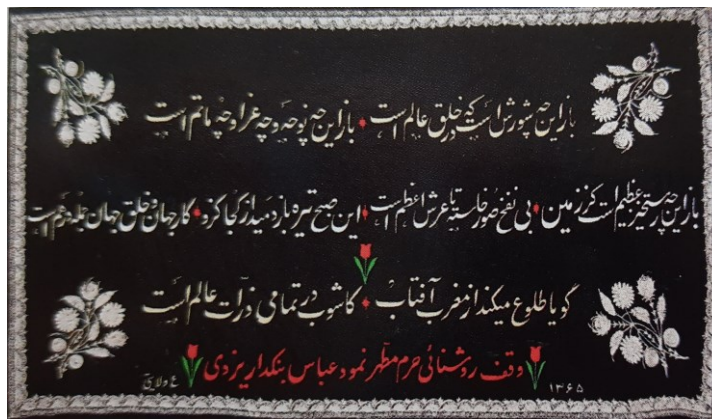 باز این چه شورش است که در خلق عالم است • باز این چه نوحه و چه عزا و چه ماتم است
باز این چه رستخیز عظیم است کز زمین • بی نفخ صور خاسته تا عرش اعظم است • این صبح تیره باز دمید از کجا کزو • کار جهان و خلق جهان جمله درهم است
گویا طلوع میکند از مغرب آفتاب • کاشوب در تمامی ذرات عالم است
وقف روشنائی حرم مطهر نمود عباس بنکدار یزدی
۱۳۶۵
ع ولایتی